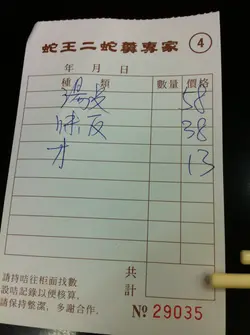 蛇王二蛇羹專家 4
年 月 日
種 類 數量 價格
58
味反 38
才 13
請持咭往柜面找數
設咭記錄以便核算．
請保持整潔，多謝合作．
共計
№ 29035